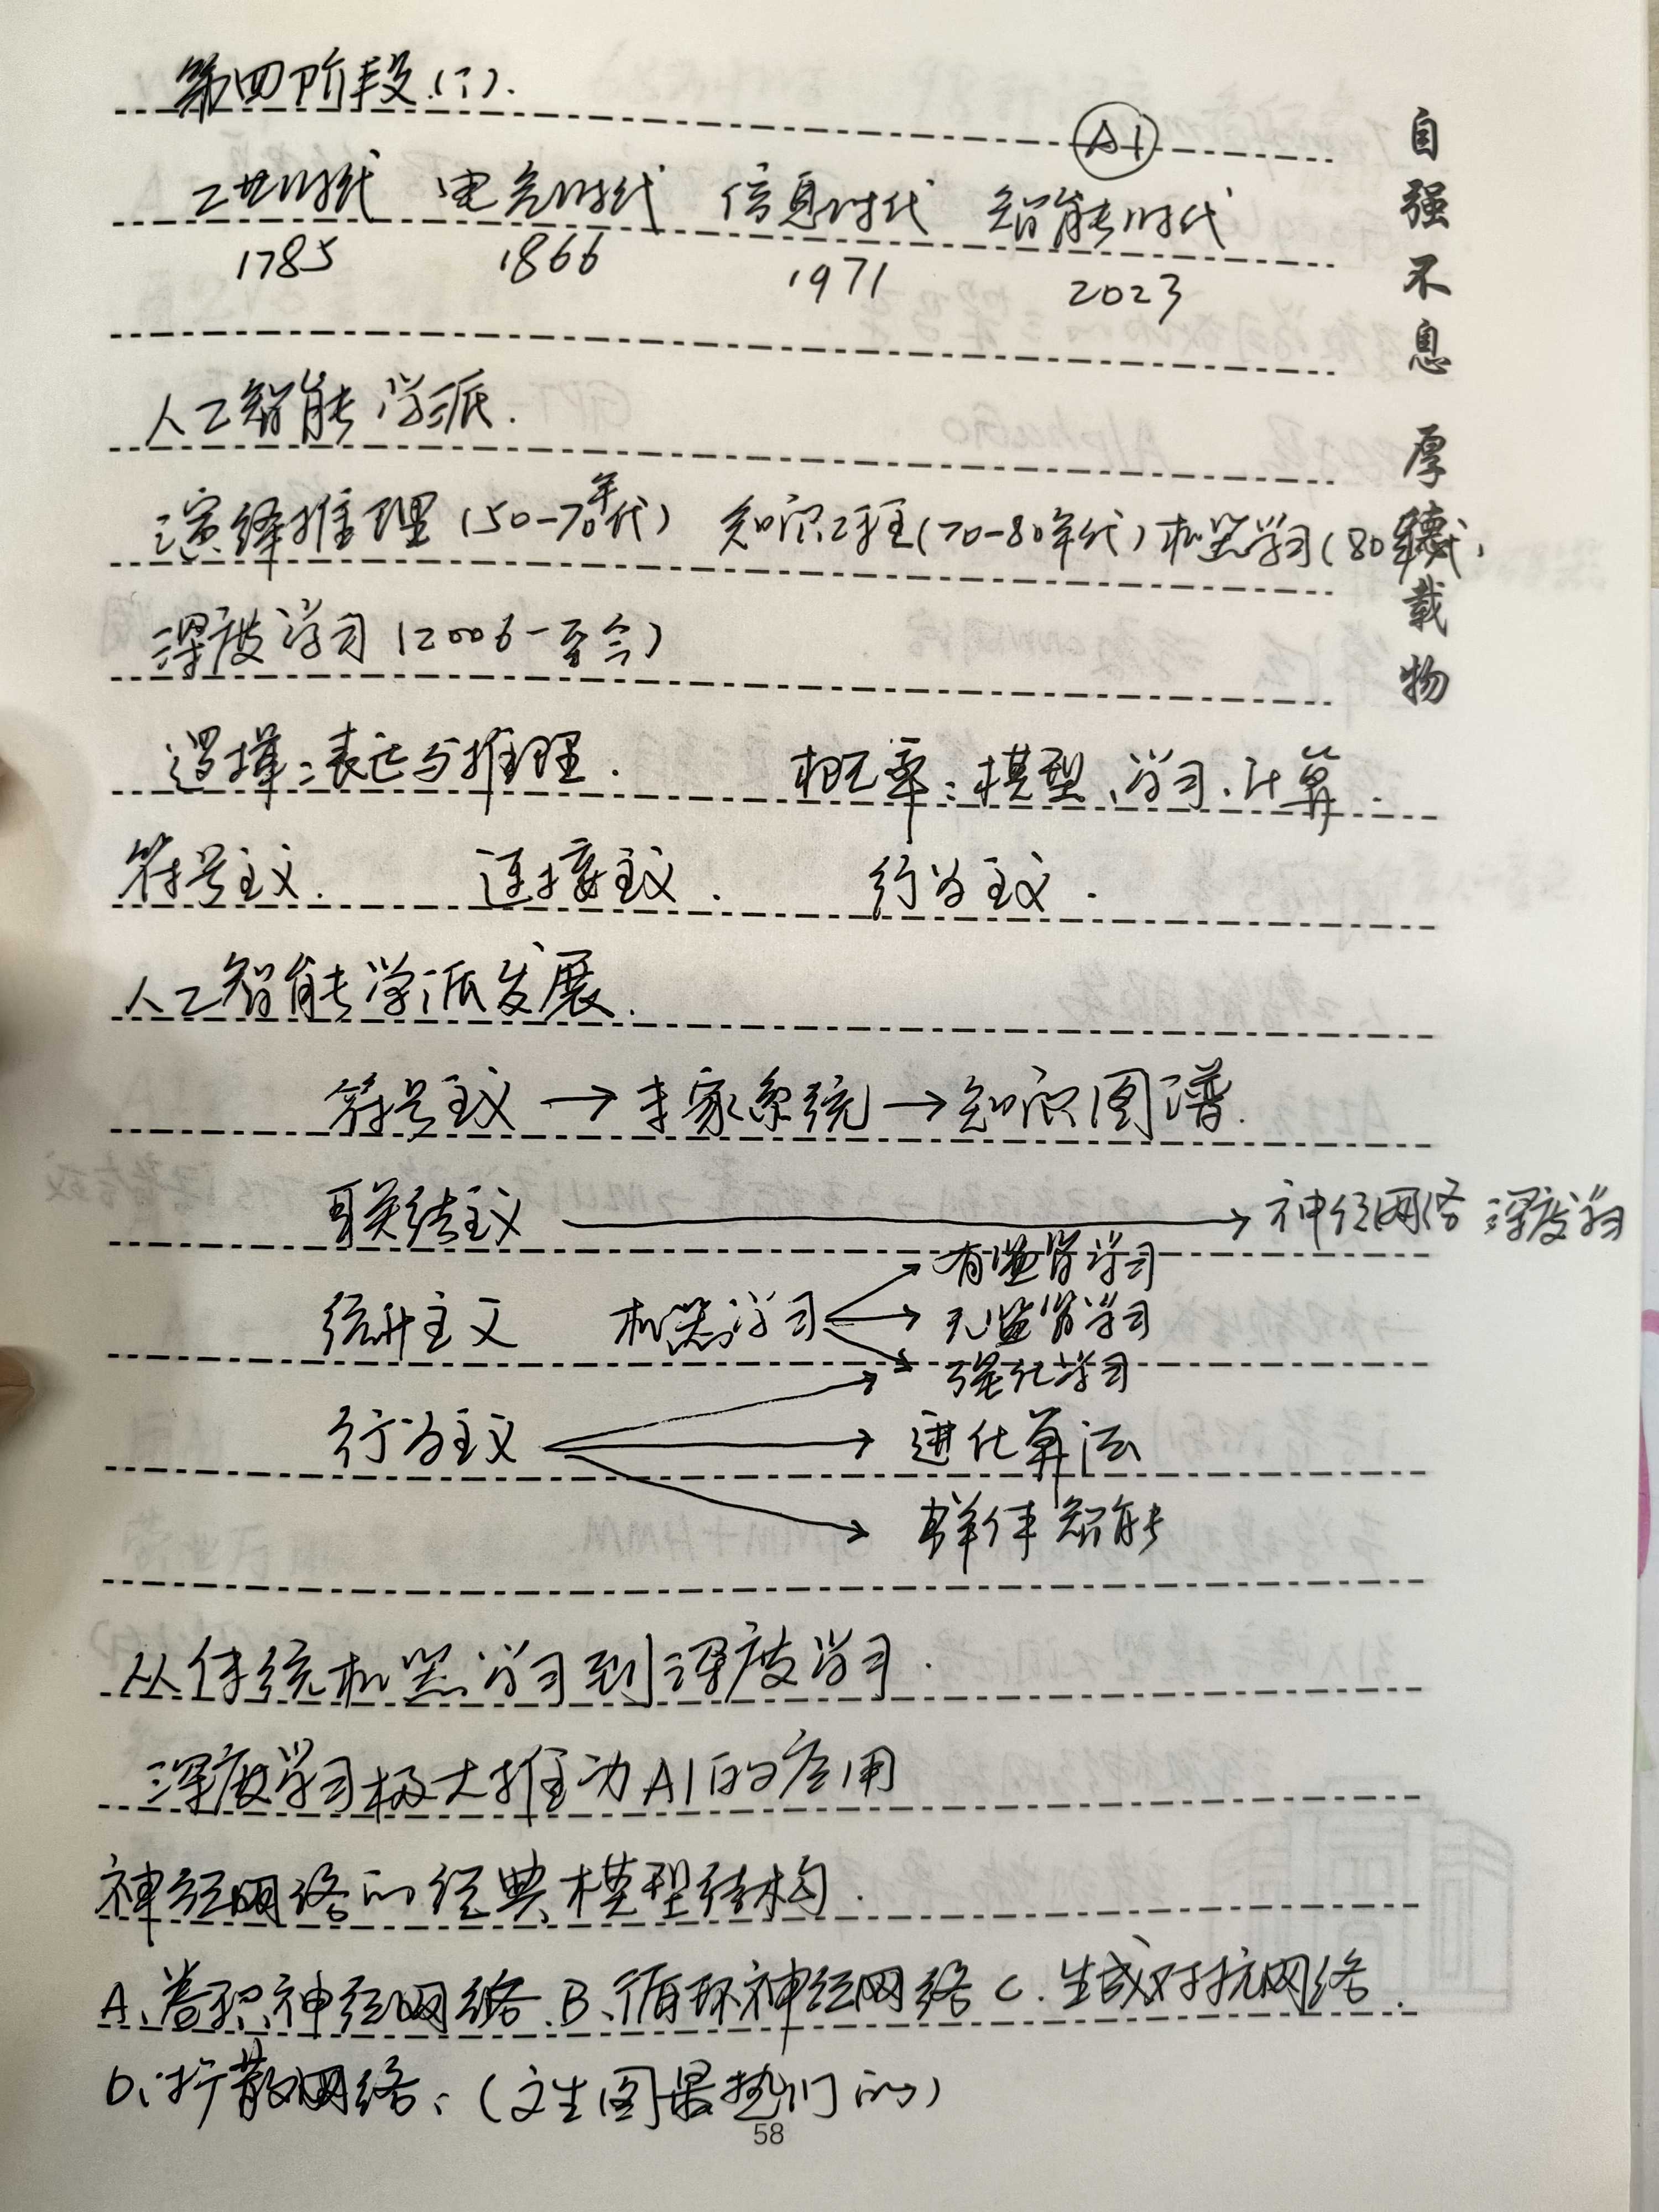 第四阶段(一).
AI
工业时代 电气时代 信息时代 智能时代
1785 1866 1971 2023
人工智能学派.
演绎推理(50-70年代) 知识工程(70-80年代) 机器学习(80年代)
深度学习(2006-至今)
逻辑:表达与推理. 概率:模型、学习、计算.
符号主义. 连接主义. 行为主义.
人工智能学派发展.
符号主义→专家系统→知识图谱.
联结主义→神经网络 深度学习
有监督学习
统计主义 机器学习→无监督学习
强化学习
行为主义→进化算法
群体智能
从传统机器学习到深度学习.
深度学习极大推动AI的应用
神经网络的经典模型结构.
A、卷积神经网络.B、循环神经网络 C.生成对抗网络.
D、扩散网络:(文生图最热门的)
58
自强不息 厚德载物